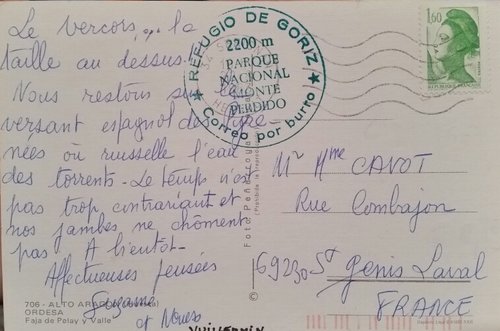 Le Vercors, que la
taille au dessus.
Nous restons sur le
versant espagnol des Pyré-
nées où ruisselle l'eau
des torrents - Le temps n'est
pas trop contrariant et
nos jambes ne chôment
pas. A bientôt -
Affectueuses pensées
et Nours
REFUGIO DE GORIZ
2200 m
PARQUE
NACIONAL
MONTE
PERDIDO
Correo por burro
1,60
REPUBLIQUE FRANÇAISE
Mr Mme CAVOT
Rue Combajon
69230 St Genis Laval
FRANCE
706 - ALTO ARAGON
ORDESA
Faja de Pelay y Valle
Foto Peñarroya